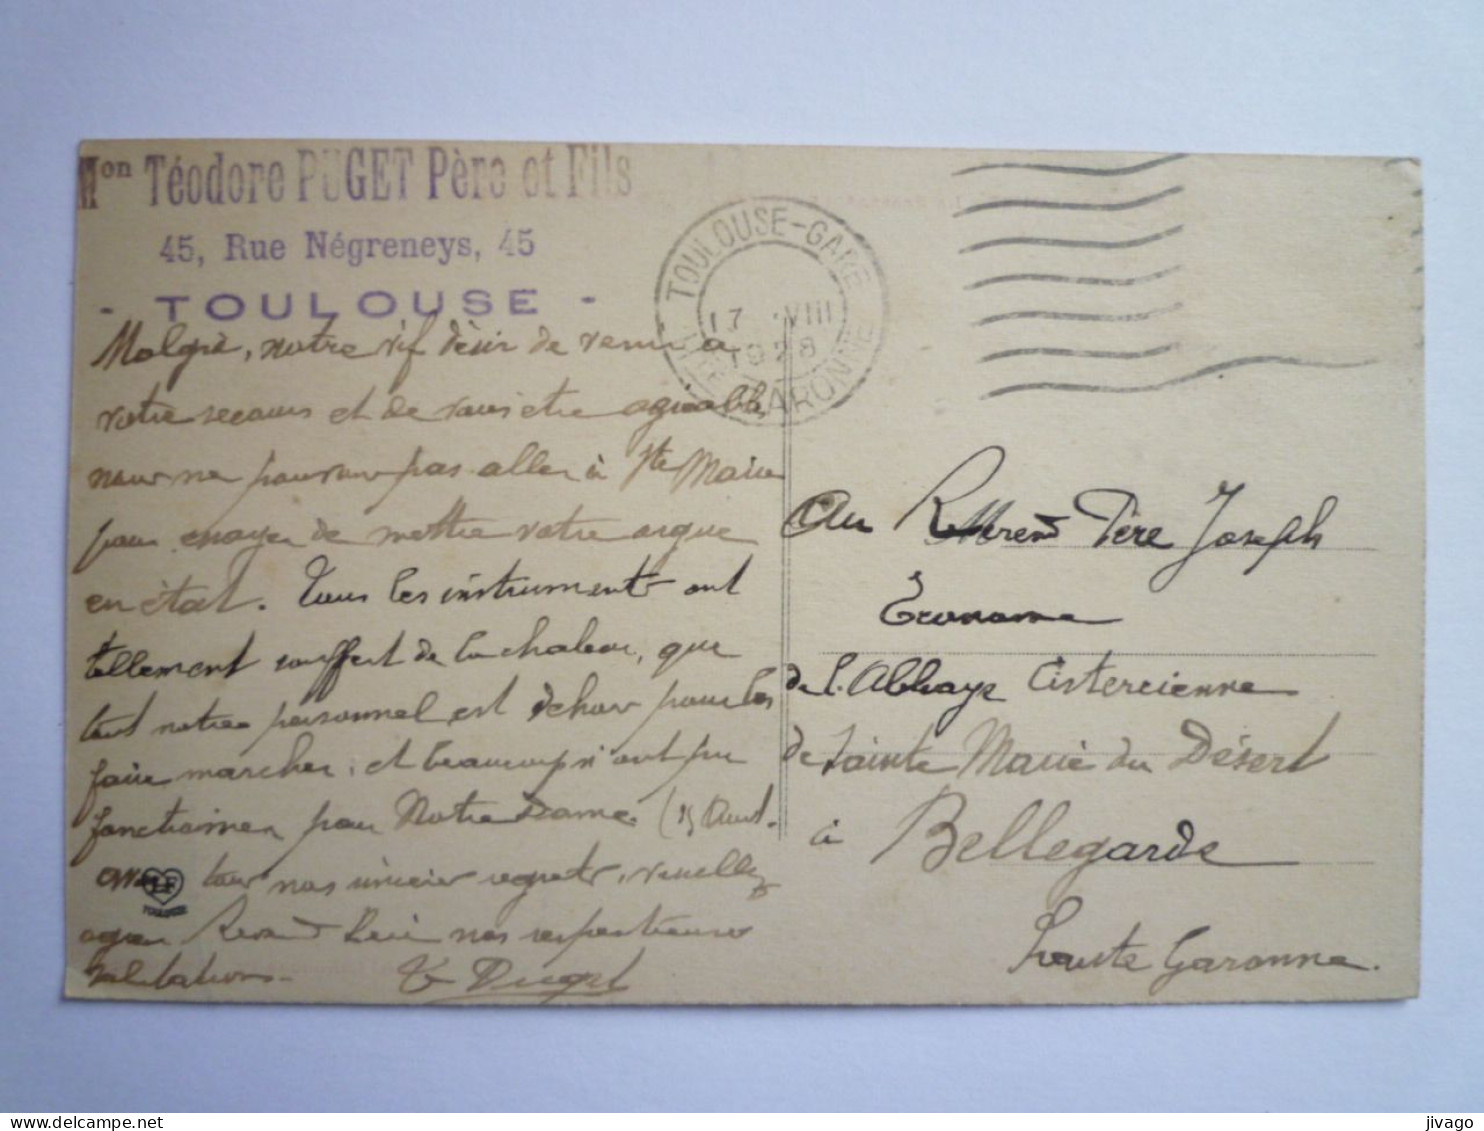 Mon Téodore PUGET Père et Fils
45, Rue Négreneys, 45
- TOULOUSE -
TOULOUSE-GARE
17 VIII
1928
HTE GARONNE
Malgré, notre vif désir de venir à
votre secours et de vous être agréable,
nous ne pouvons pas aller à Ste Marie
pour essayer de mettre votre orgue
en état. Tous les instruments ont
tellement souffert de la chaleur, que
tout notre personnel est dehors pour les
faire marcher, et beaucoup n'ont pu
fonctionner pour Notre Dame (15 Aout.
tous nos sincères regrets, veuillez
agréer Révérend Père nos respectueuses
salutations.
Puget
LF
TOULOUSE
Au Révérend Père Joseph
Econome
de l'Abbaye Cistercienne
de Sainte Marie du Désert
à Bellegarde
Haute Garonne.
jivago